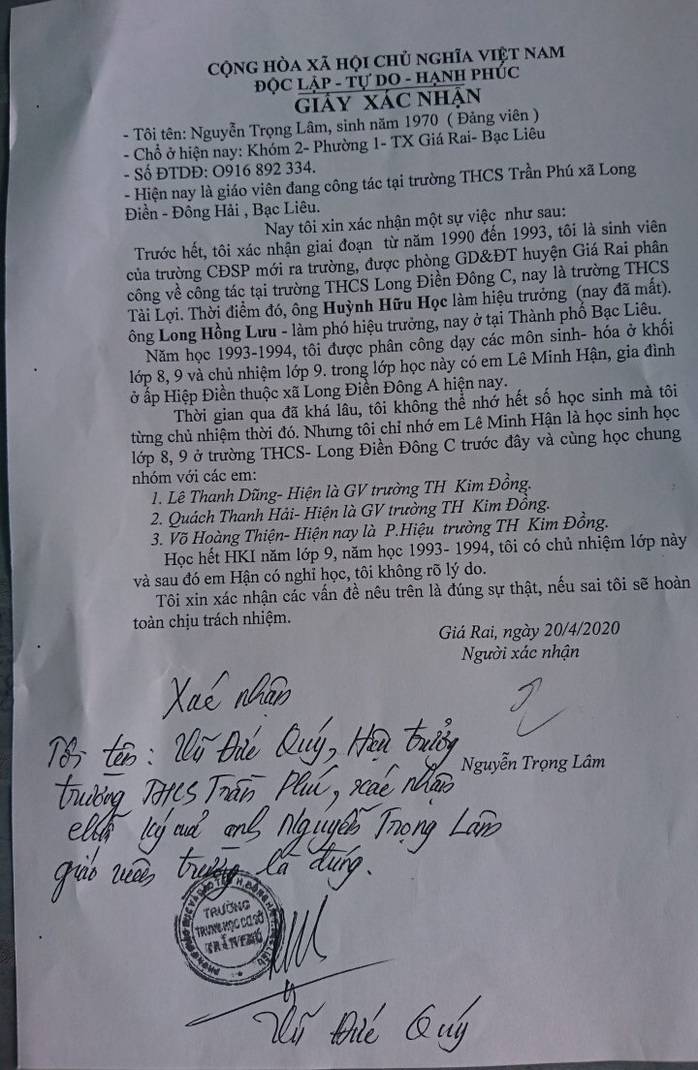 CỘNG HÒA XÃ HỘI CHỦ NGHĨA VIỆT NAM
ĐỘC LẬP - TỰ DO - HẠNH PHÚC
GIẤY XÁC NHẬN
- Tôi tên: Nguyễn Trọng Lâm, sinh năm 1970 ( Đảng viên )
- Chổ ở hiện nay: Khóm 2- Phường 1- TX Giá Rai- Bạc Liêu
- Số ĐTDĐ: O916 892 334.
- Hiện nay là giáo viên đang công tác tại trường THCS Trần Phú xã Long
Điền - Đông Hải , Bạc Liêu.
Nay tôi xin xác nhận một sự việc như sau:
Trước hết, tôi xác nhận giai đoạn từ năm 1990 đến 1993, tôi là sinh viên
của trường CĐSP mới ra trường, được phòng GD&ĐT huyện Giá Rai phân
công về công tác tại trường THCS Long Điền Đông C, nay là trường THCS
Tài Lợi. Thời điểm đó, ông Huỳnh Hữu Học làm hiệu trưởng (nay đã mất).
ông Long Hồng Lưu - làm phó hiệu trưởng, nay ở tại Thành phố Bạc Liêu.
Năm học 1993-1994, tôi được phân công dạy các môn sinh- hóa ở khối
lớp 8, 9 và chủ nhiệm lớp 9. trong lớp học này có em Lê Minh Hận, gia đình
ở ấp Hiệp Điền thuộc xã Long Điền Đông A hiện nay.
Thời gian qua đã khá lâu, tôi không thể nhớ hết số học sinh mà tôi
từng chủ nhiệm thời đó. Nhưng tôi chỉ nhớ em Lê Minh Hận là học sinh học
lớp 8, 9 ở trường THCS- Long Điền Đông C trước đây và cùng học chung
nhóm với các em:
1. Lê Thanh Dũng- Hiện là GV trường TH Kim Đồng.
2. Quách Thanh Hải- Hiện là GV trường TH Kim Đồng.
3. Võ Hoàng Thiện- Hiện nay là P.Hiệu trường TH Kim Đồng.
Học hết HKI năm lớp 9, năm học 1993- 1994, tôi có chủ nhiệm lớp này
và sau đó em Hận có nghỉ học, tôi không rõ lý do.
Tôi xin xác nhận các vấn đề nêu trên là đúng sự thật, nếu sai tôi sẽ hoàn
toàn chịu trách nhiệm.
Giá Rai, ngày 20/4/2020
Người xác nhận
Nguyễn Trọng Lâm
Xác nhận
Tôi tên: Vũ Đức Quý, Hiệu trưởng
trường THCS Trần Phú, xác nhận
chữ ký của anh Nguyễn Trọng Lâm
giáo viên trường là đúng.
TRƯỜNG
TRUNG HỌC CƠ SỞ
TRẦN PHÚ
Vũ Đức Quý